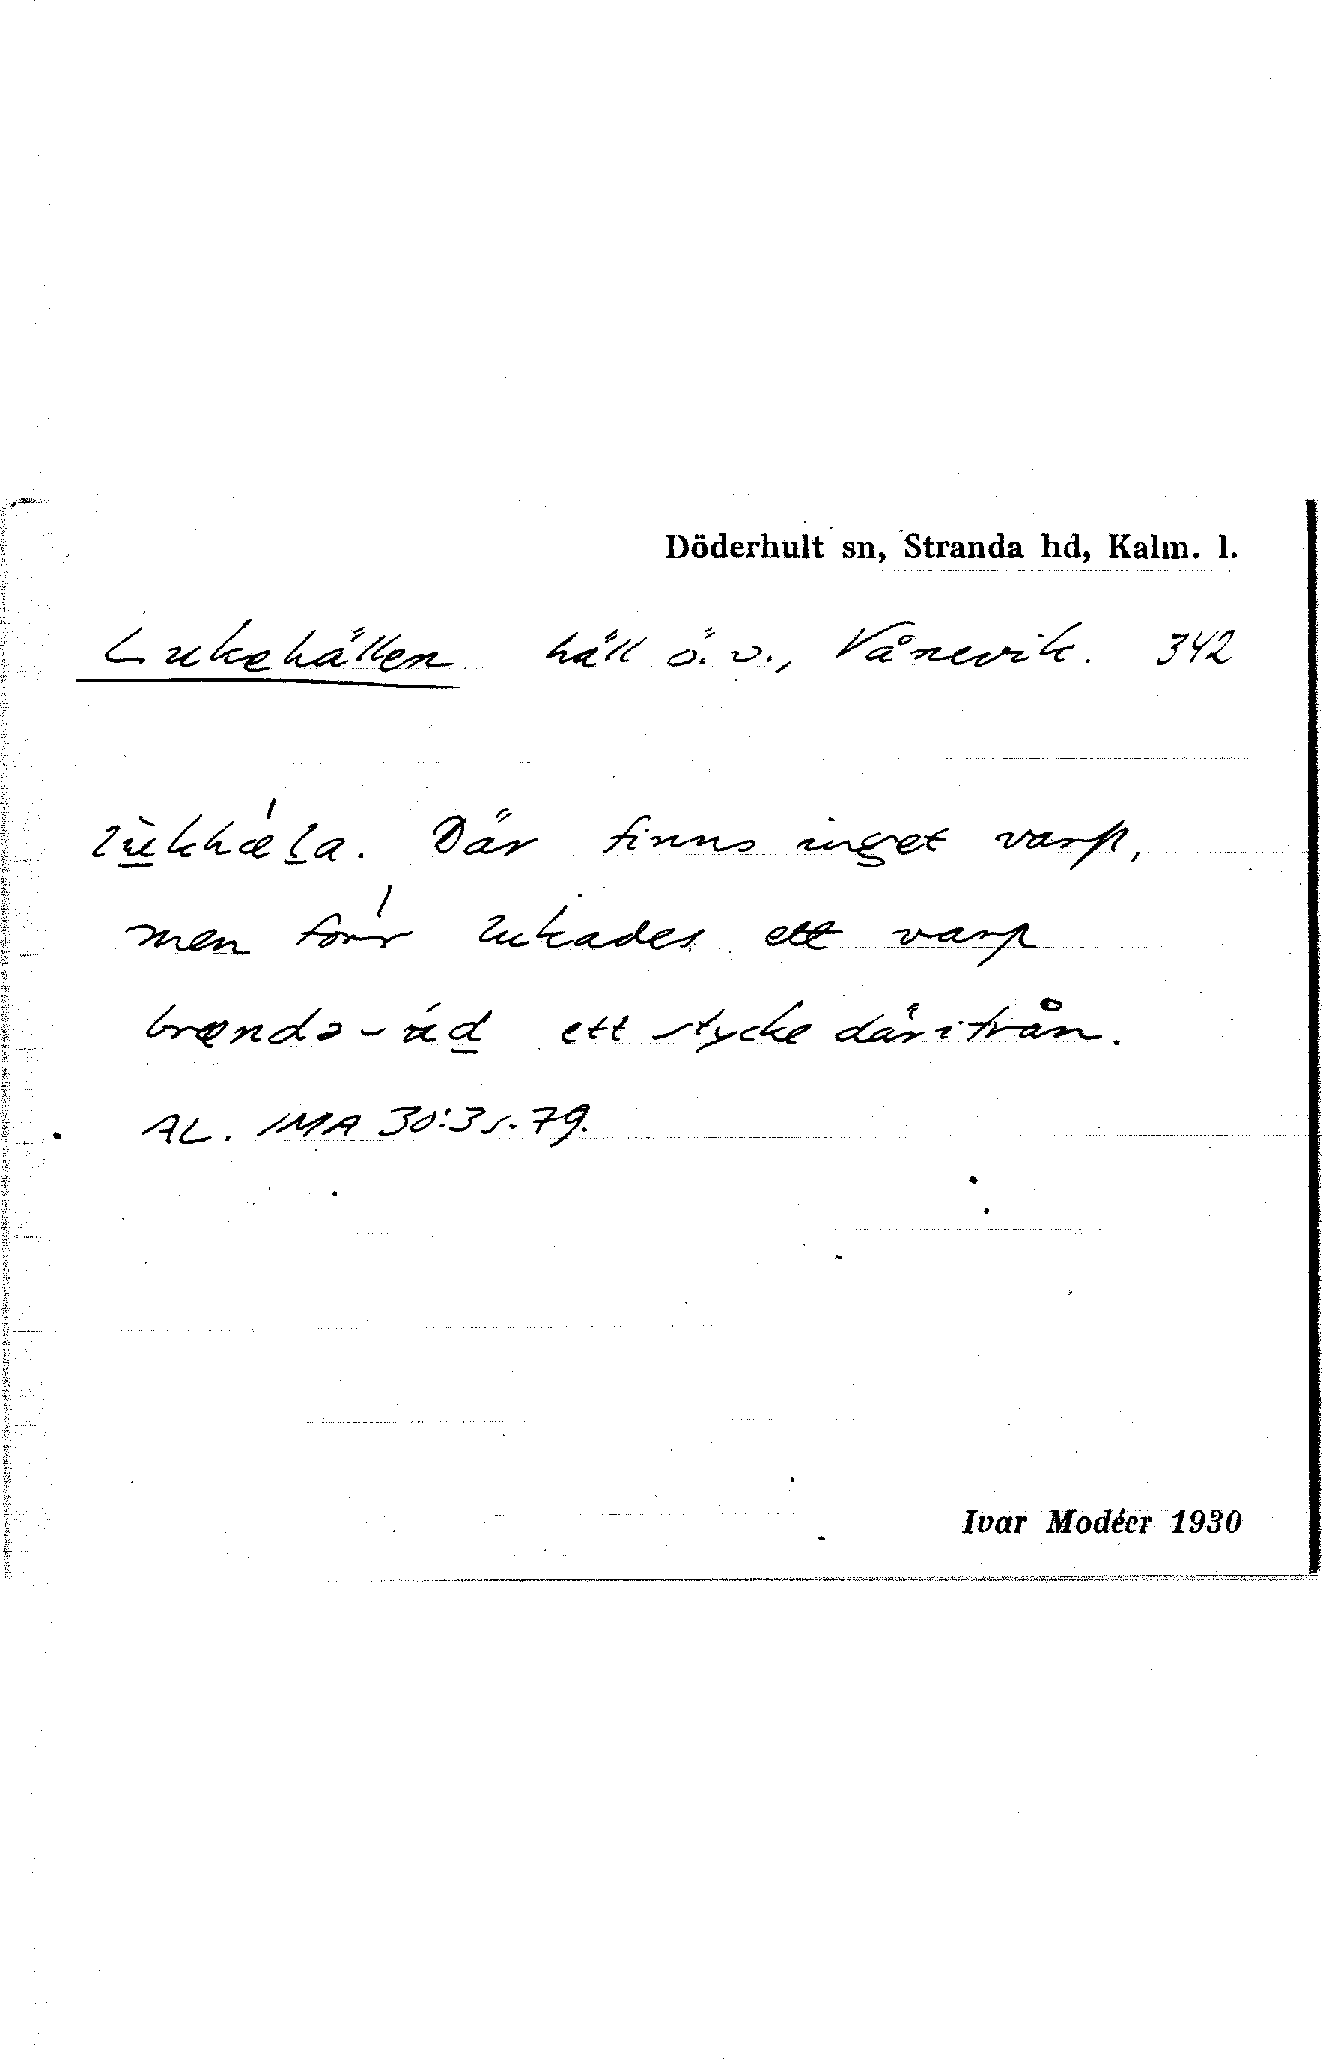 Döderhult sn, Stranda hd, Kalm. l.
Lukehällen häll ö. v., Vånevik. 342
lùkhæ̍la. Där finns inget varp,
men förr lukades ett varp
brændə-ùd ett stycke därifrån.
AL. IMA 30:3 s. 79.
Ivar Modéer 1930